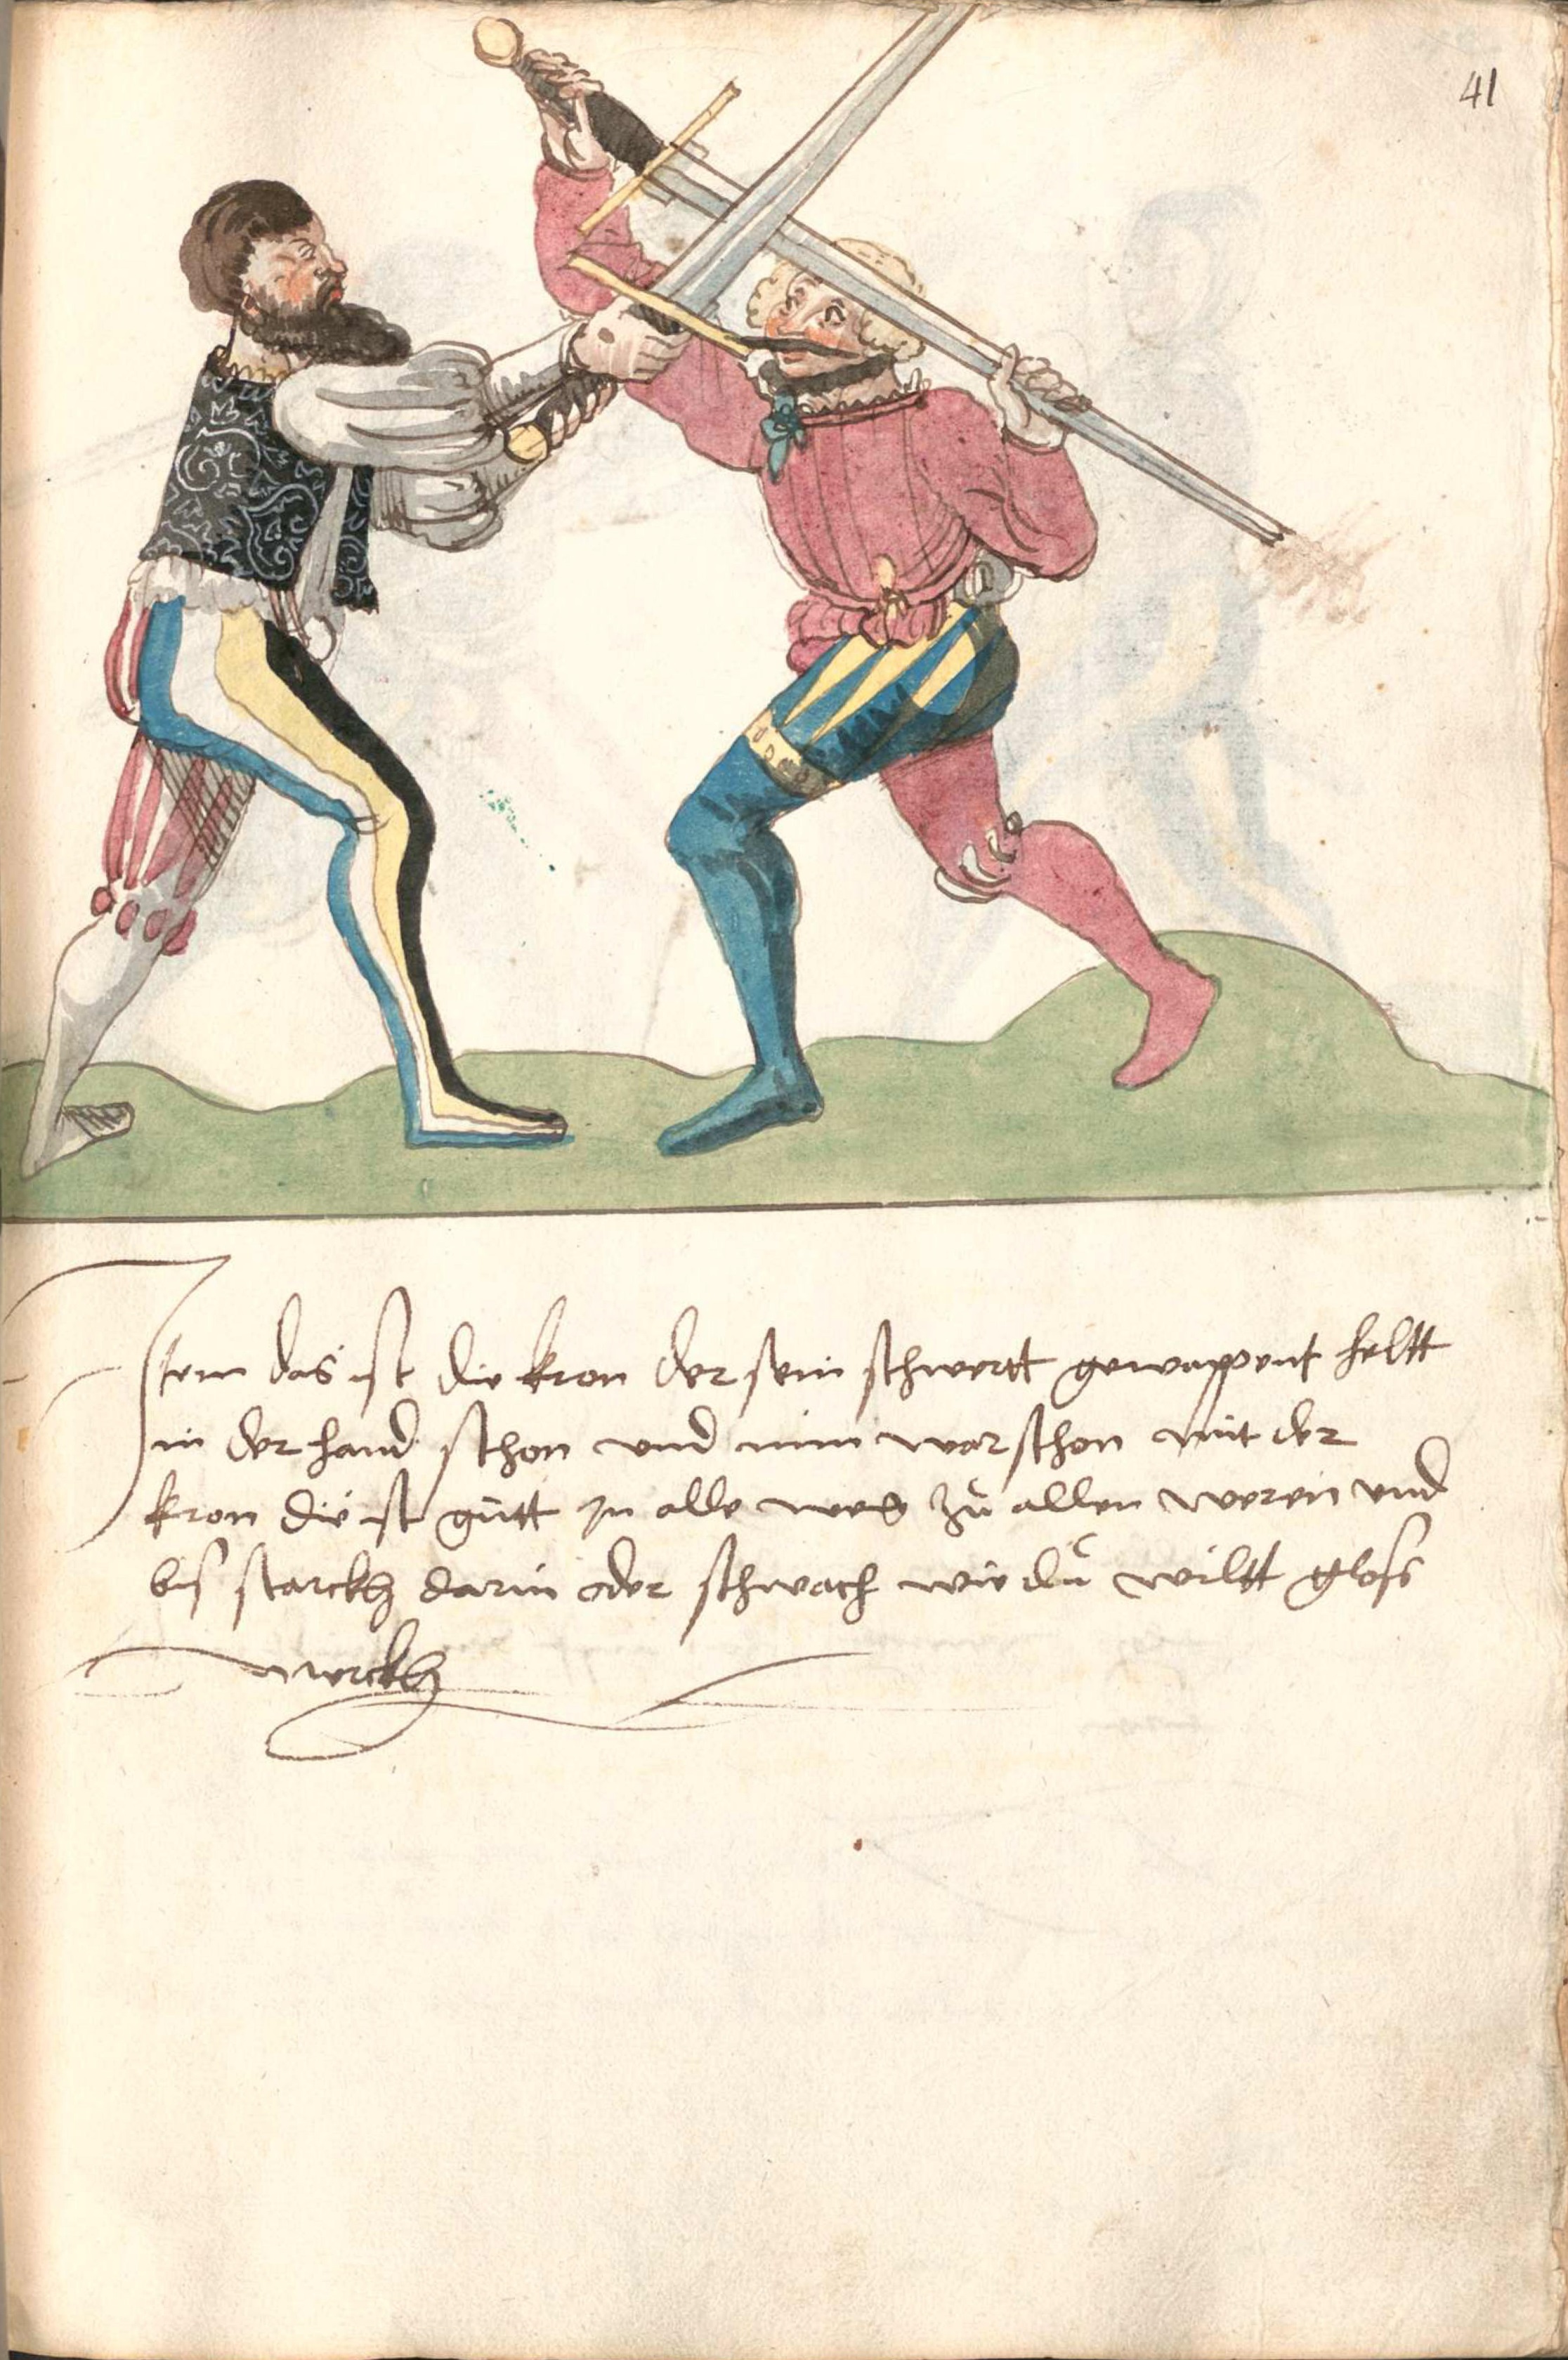 41
Item das ist die kron der sein schwertt gewappent heltt
in der hand schon und nim war schon mit der
kron die ist gütt In alle weg zů allen weren und
bis starckh darin oder schwach wie dů wiltt gloss
merckh